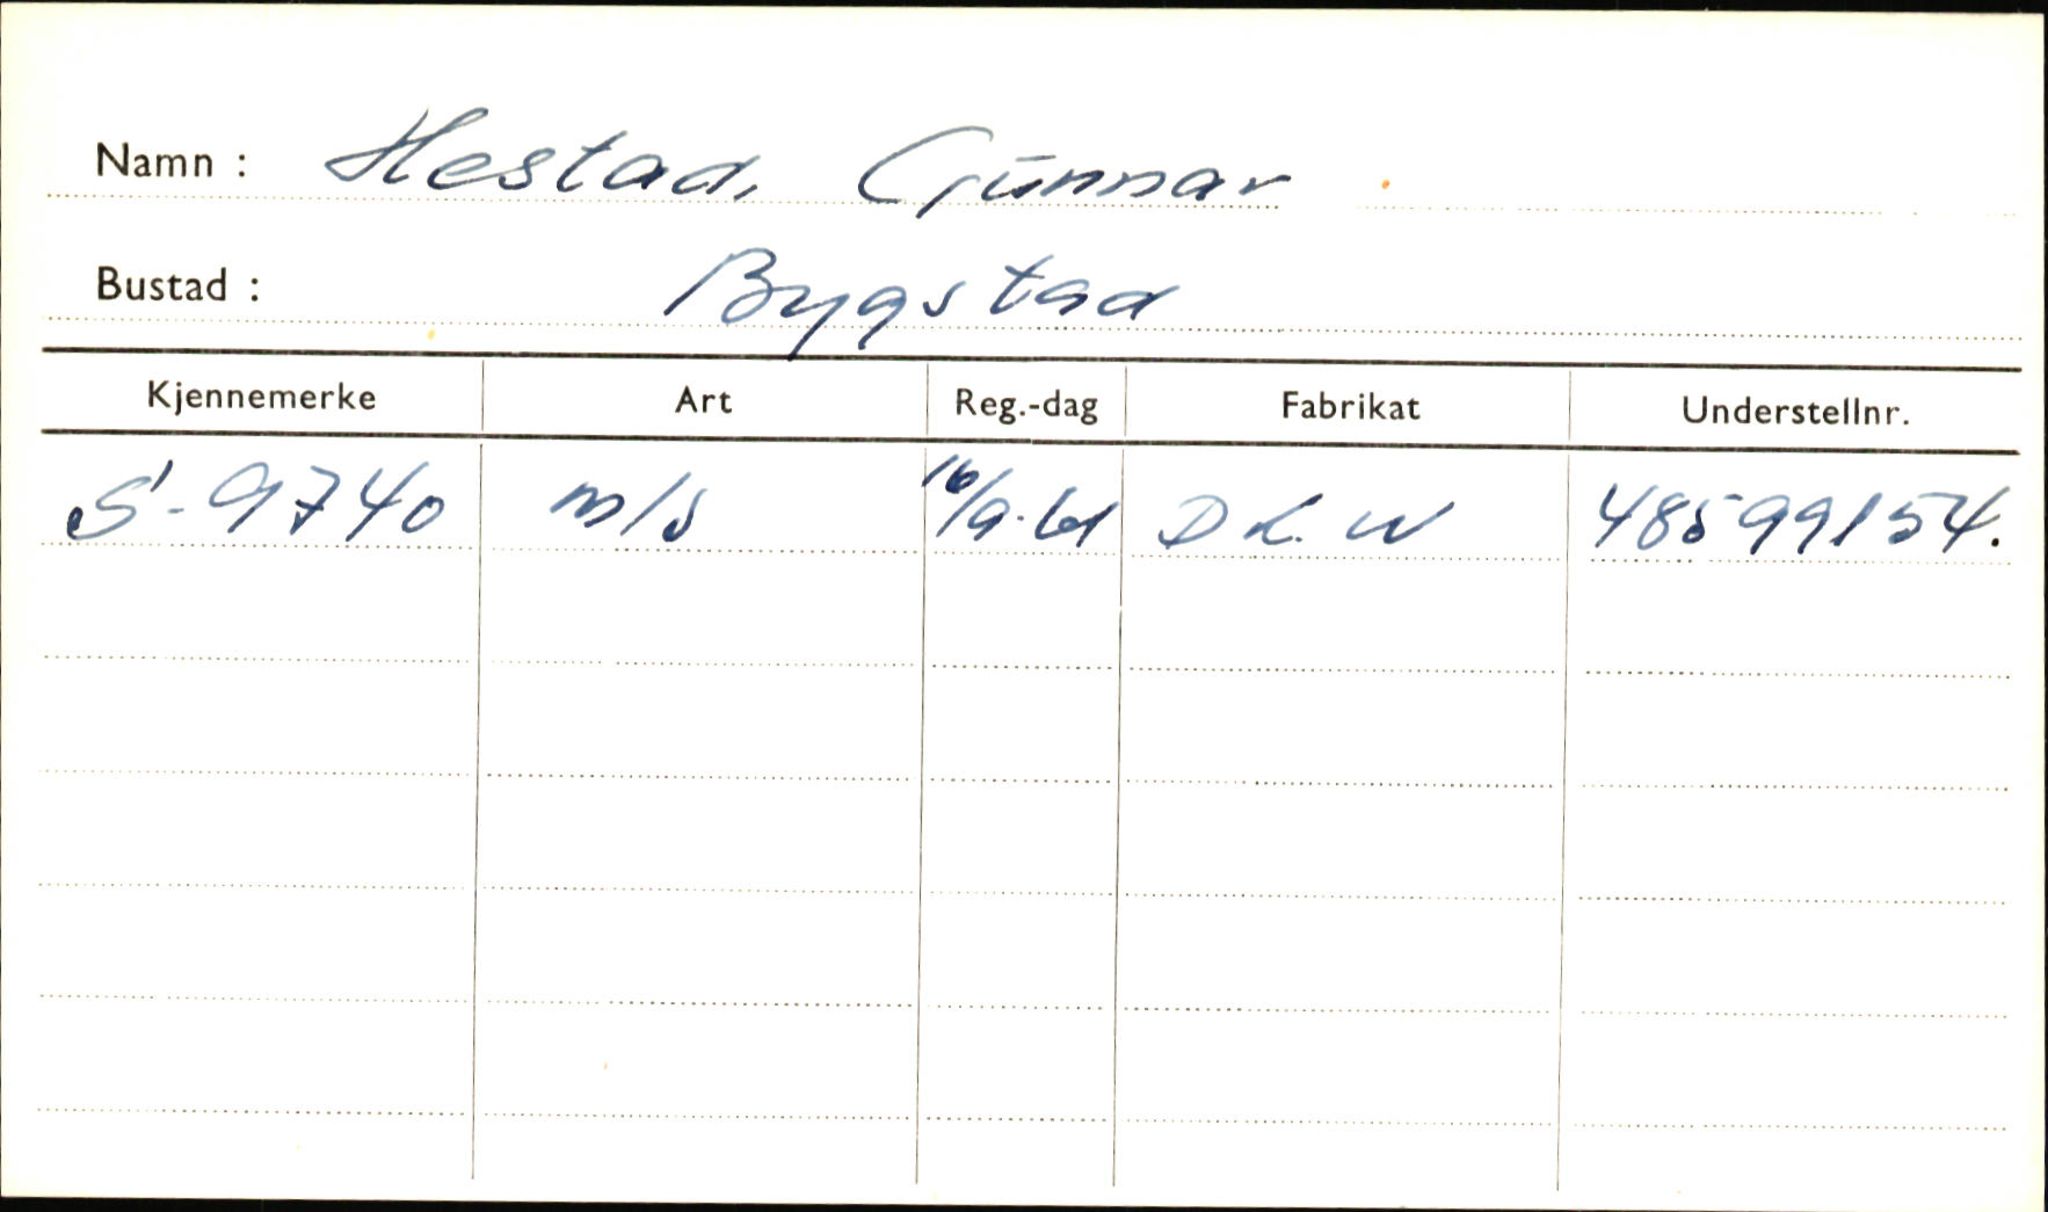 Namn : Hestad, Gunnar
Bustad : Bygstad
Kjennemerke Art Reg.-dag Fabrikat Understellnr.
S-9740 m/s 16/9-61 D.K.W 48599154.